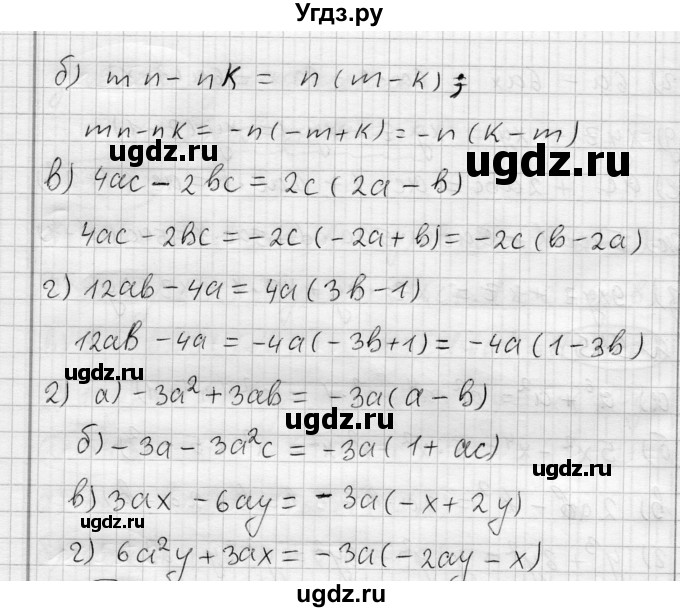 Угдз.ру
б) mn - nк = n(m-к);
mn-nк = -n(-m+к) = -n(к-m)
ugdz.ru ugdz.ru
в) 4ac - 2bc = 2c(2a - b)
4ac - 2bc = -2c(-2a+b) = -2c(b-2a)
ugdz.ru
г) 12ab - 4a = 4a(3b-1)
12ab - 4a = -4a(-3b+1) = -4a(1-3b)
ugdz.ru
2) а) -3a²+3ab = -3a(a-b)
ugdz.ru
б) -3a - 3a²c = -3a(1+ac)
ugdz.ru
в) 3ax - 6ay = -3a(-x+2y)
ugdz.ru
г) 6a²y+3ax = -3a(-2ay-x)
ugdz.ru